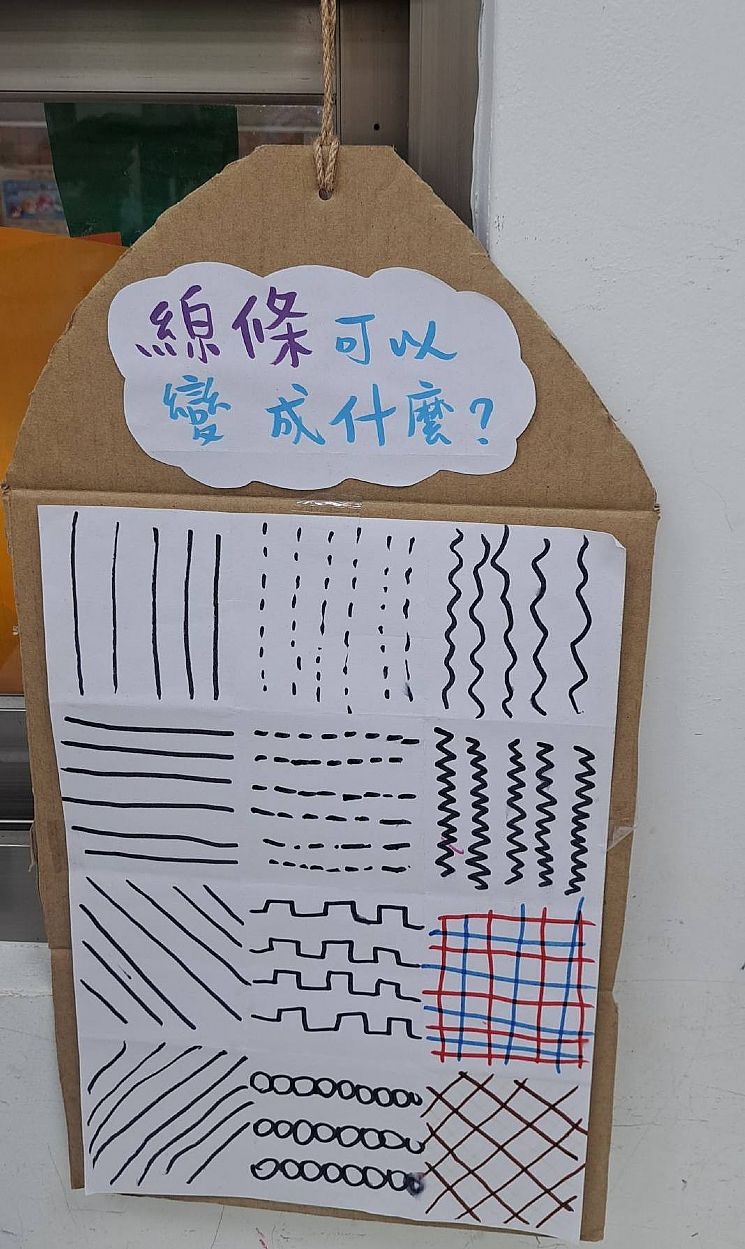 線條可以
變成什麼?